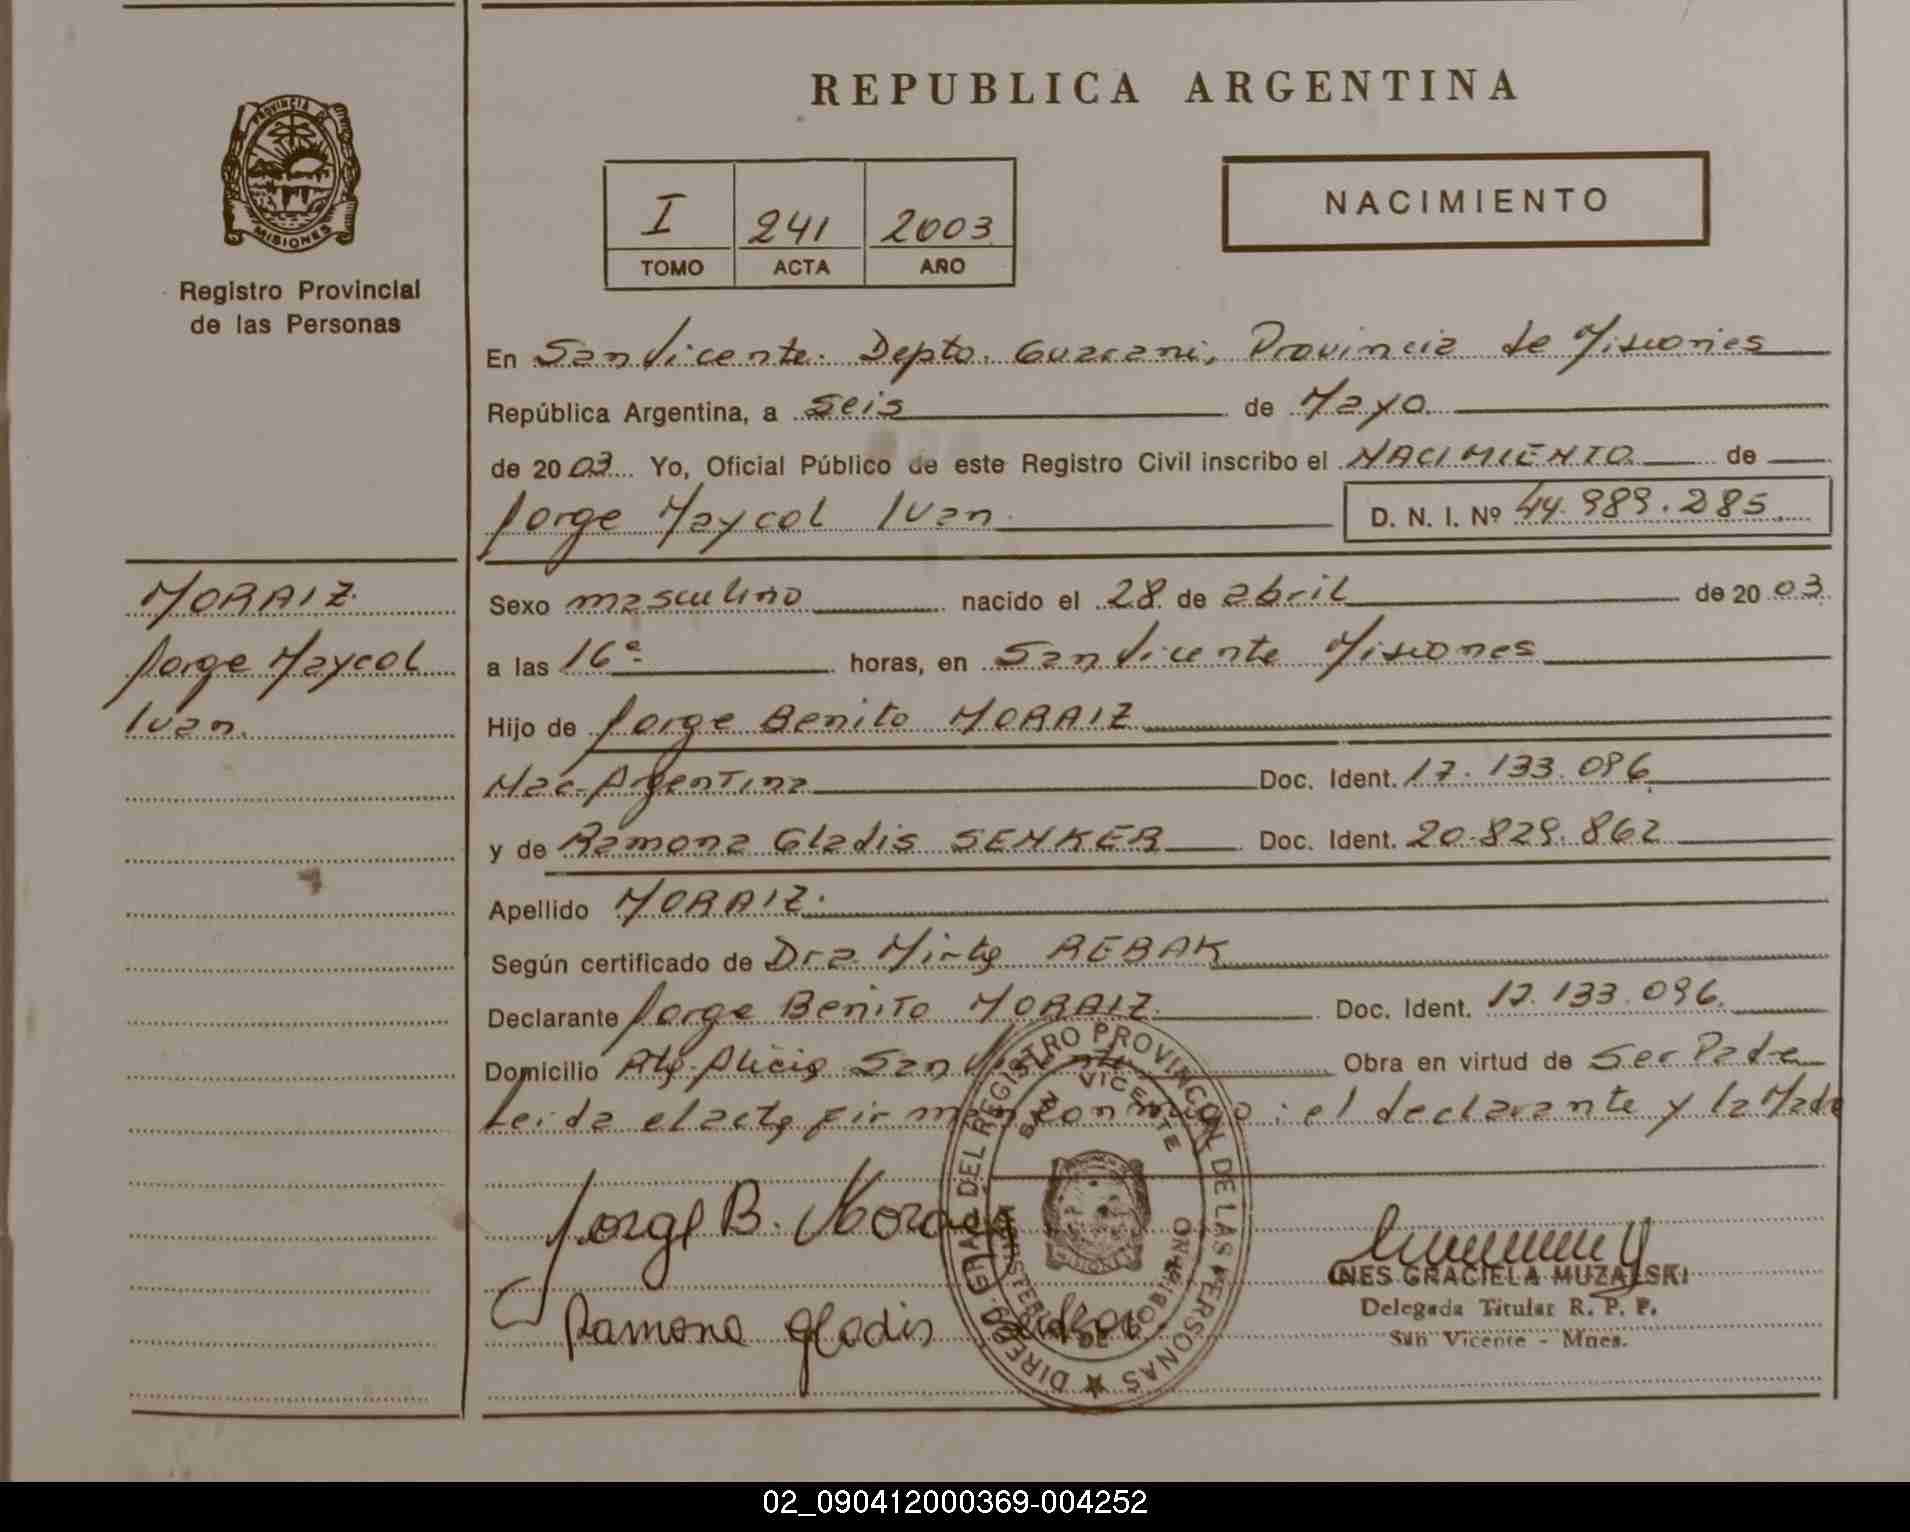 REPUBLICA ARGENTINA
PROVINCIA DE
MISIONES
Registro Provincial
de las Personas
I 241 2003
TOMO ACTA AÑO
NACIMIENTO
En San Vicente. Depto. Guarani, Provincia de Misiones
República Argentina, a seis de Mayo
de 2003 Yo, Oficial Público de este Registro Civil inscribo el NACIMIENTO de
Jorge Maycol Ivan D. N. I. Nº 44.989.285
MORAIZ
Jorge Maycol
Ivan.
Sexo masculino nacido el 28 de abril de 2003
a las 16 horas, en San Vicente Misiones
Hijo de Jorge Benito MORAIZ
Nac. Argentina Doc. Ident. 17.133.096
y de Ramona Gladis SENKER Doc. Ident. 20.829.862
Apellido MORAIZ.
Según certificado de Dra. Mirta REBAK
Declarante Jorge Benito MORAIZ. Doc. Ident. 17.133.096.
Domicilio Alicia San Vicente Obra en virtud de Ser Padre
Leida el acta firman conmigo: el declarante y la Madre
Jorge B. Moraiz
Ramona gladis Senker
DIREC. GRAL. DEL REGISTRO PROVINCIAL DE LAS PERSONAS
SAN VICENTE
MINISTERIO DE GOBIERNO
INES GRACIELA MUZALSKI
Delegada Titular R. P. P.
San Vicente - Mnes.
02_090412000369-004252